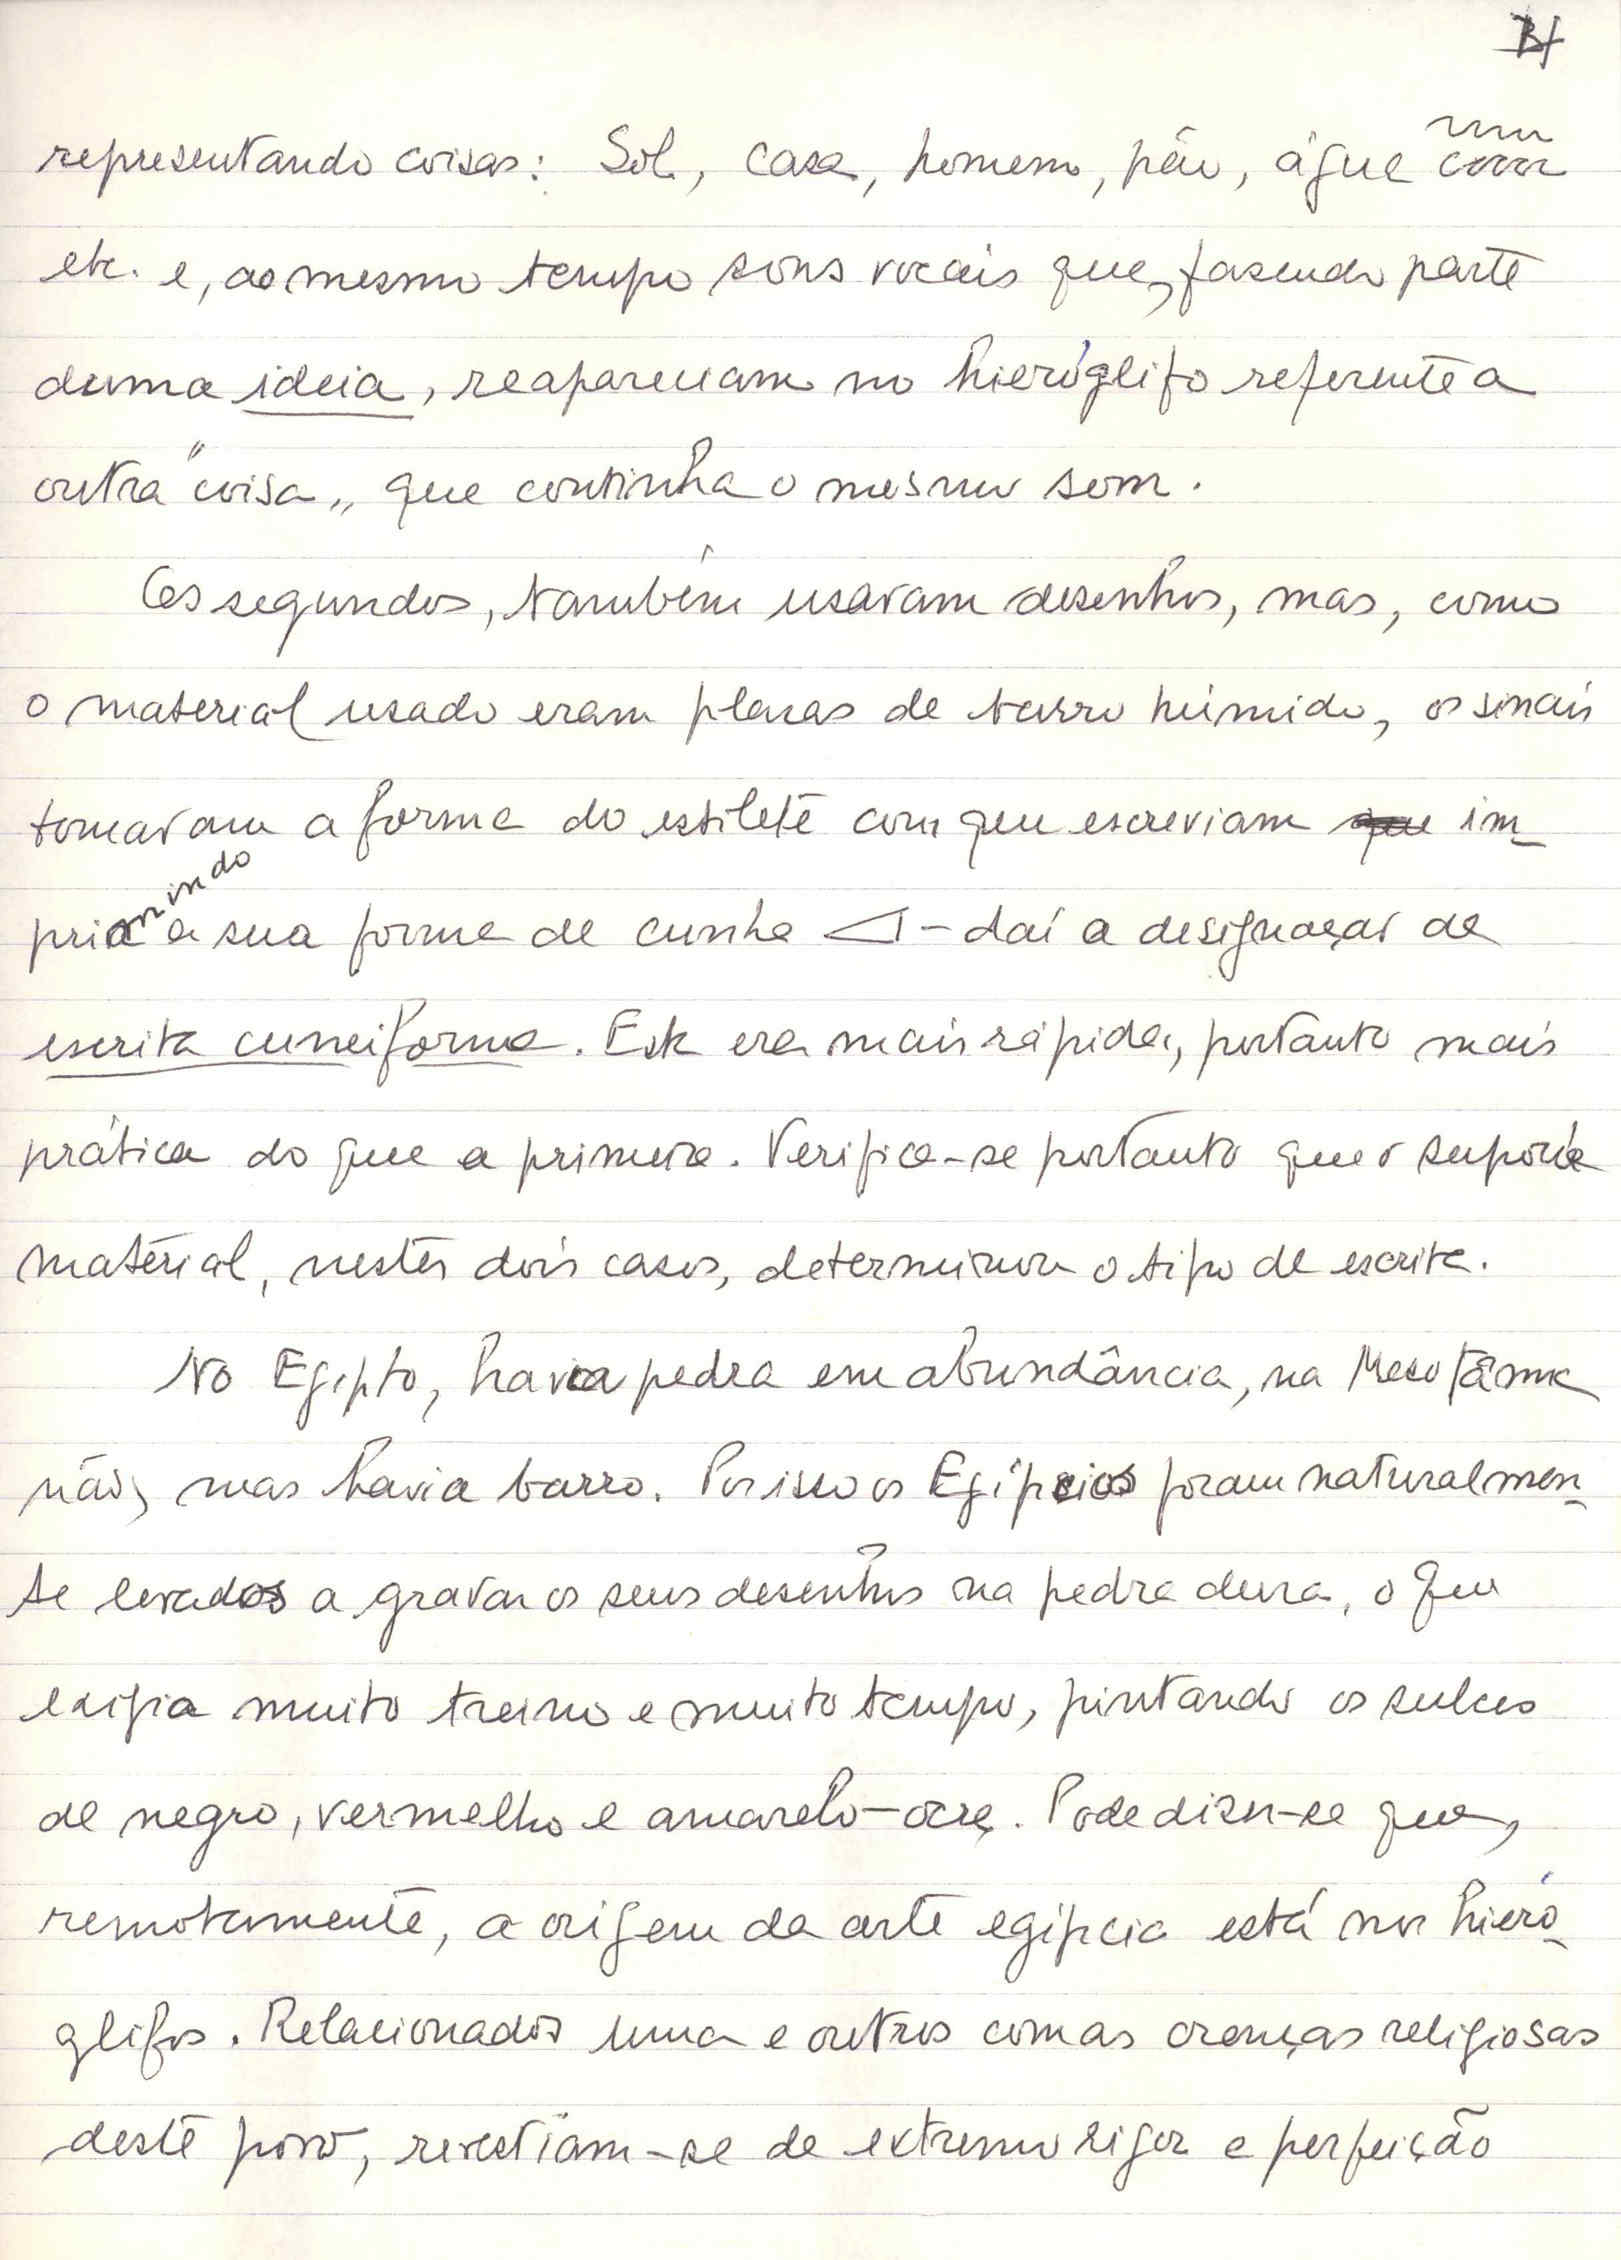 representando coisas: Sol, casa, homem, pão, água
etc. e, ao mesmo tempo sons vocais que, fazendo parte
duma ideia, reapareciam no hieróglifo referente a
outra "coisa„ que continha o mesmo som.
Os segundos, também usavam desenhos, mas, como
o material usado eram placas de barro húmido, os sinais
tomavam a forma do estilete com que escreviam im-
primindo a sua forma de cunha - daí a designação de
escrita cuneiforme. Esta era mais rápida, portanto mais
prática do que a primeira. Verifica-se portanto que o suporte
material, nestes dois casos, determinou o tipo de escrita.
No Egipto, havia pedra em abundância, na
não, mas havia barro. Por isso os Egípcios foram naturalmen-
te levados a gravar os seus desenhos na pedra dura, o que
exigia muito treino e muito tempo, pintando os sulcos
de negro, vermelho e amarelo-ocre. Pode dizer-se que,
remotamente, a origem da arte egípcia está nos hieró-
glifos. Relacionados uma e outros com as crenças religiosas
deste povo, revestiam-se de extremo rigor e perfeição